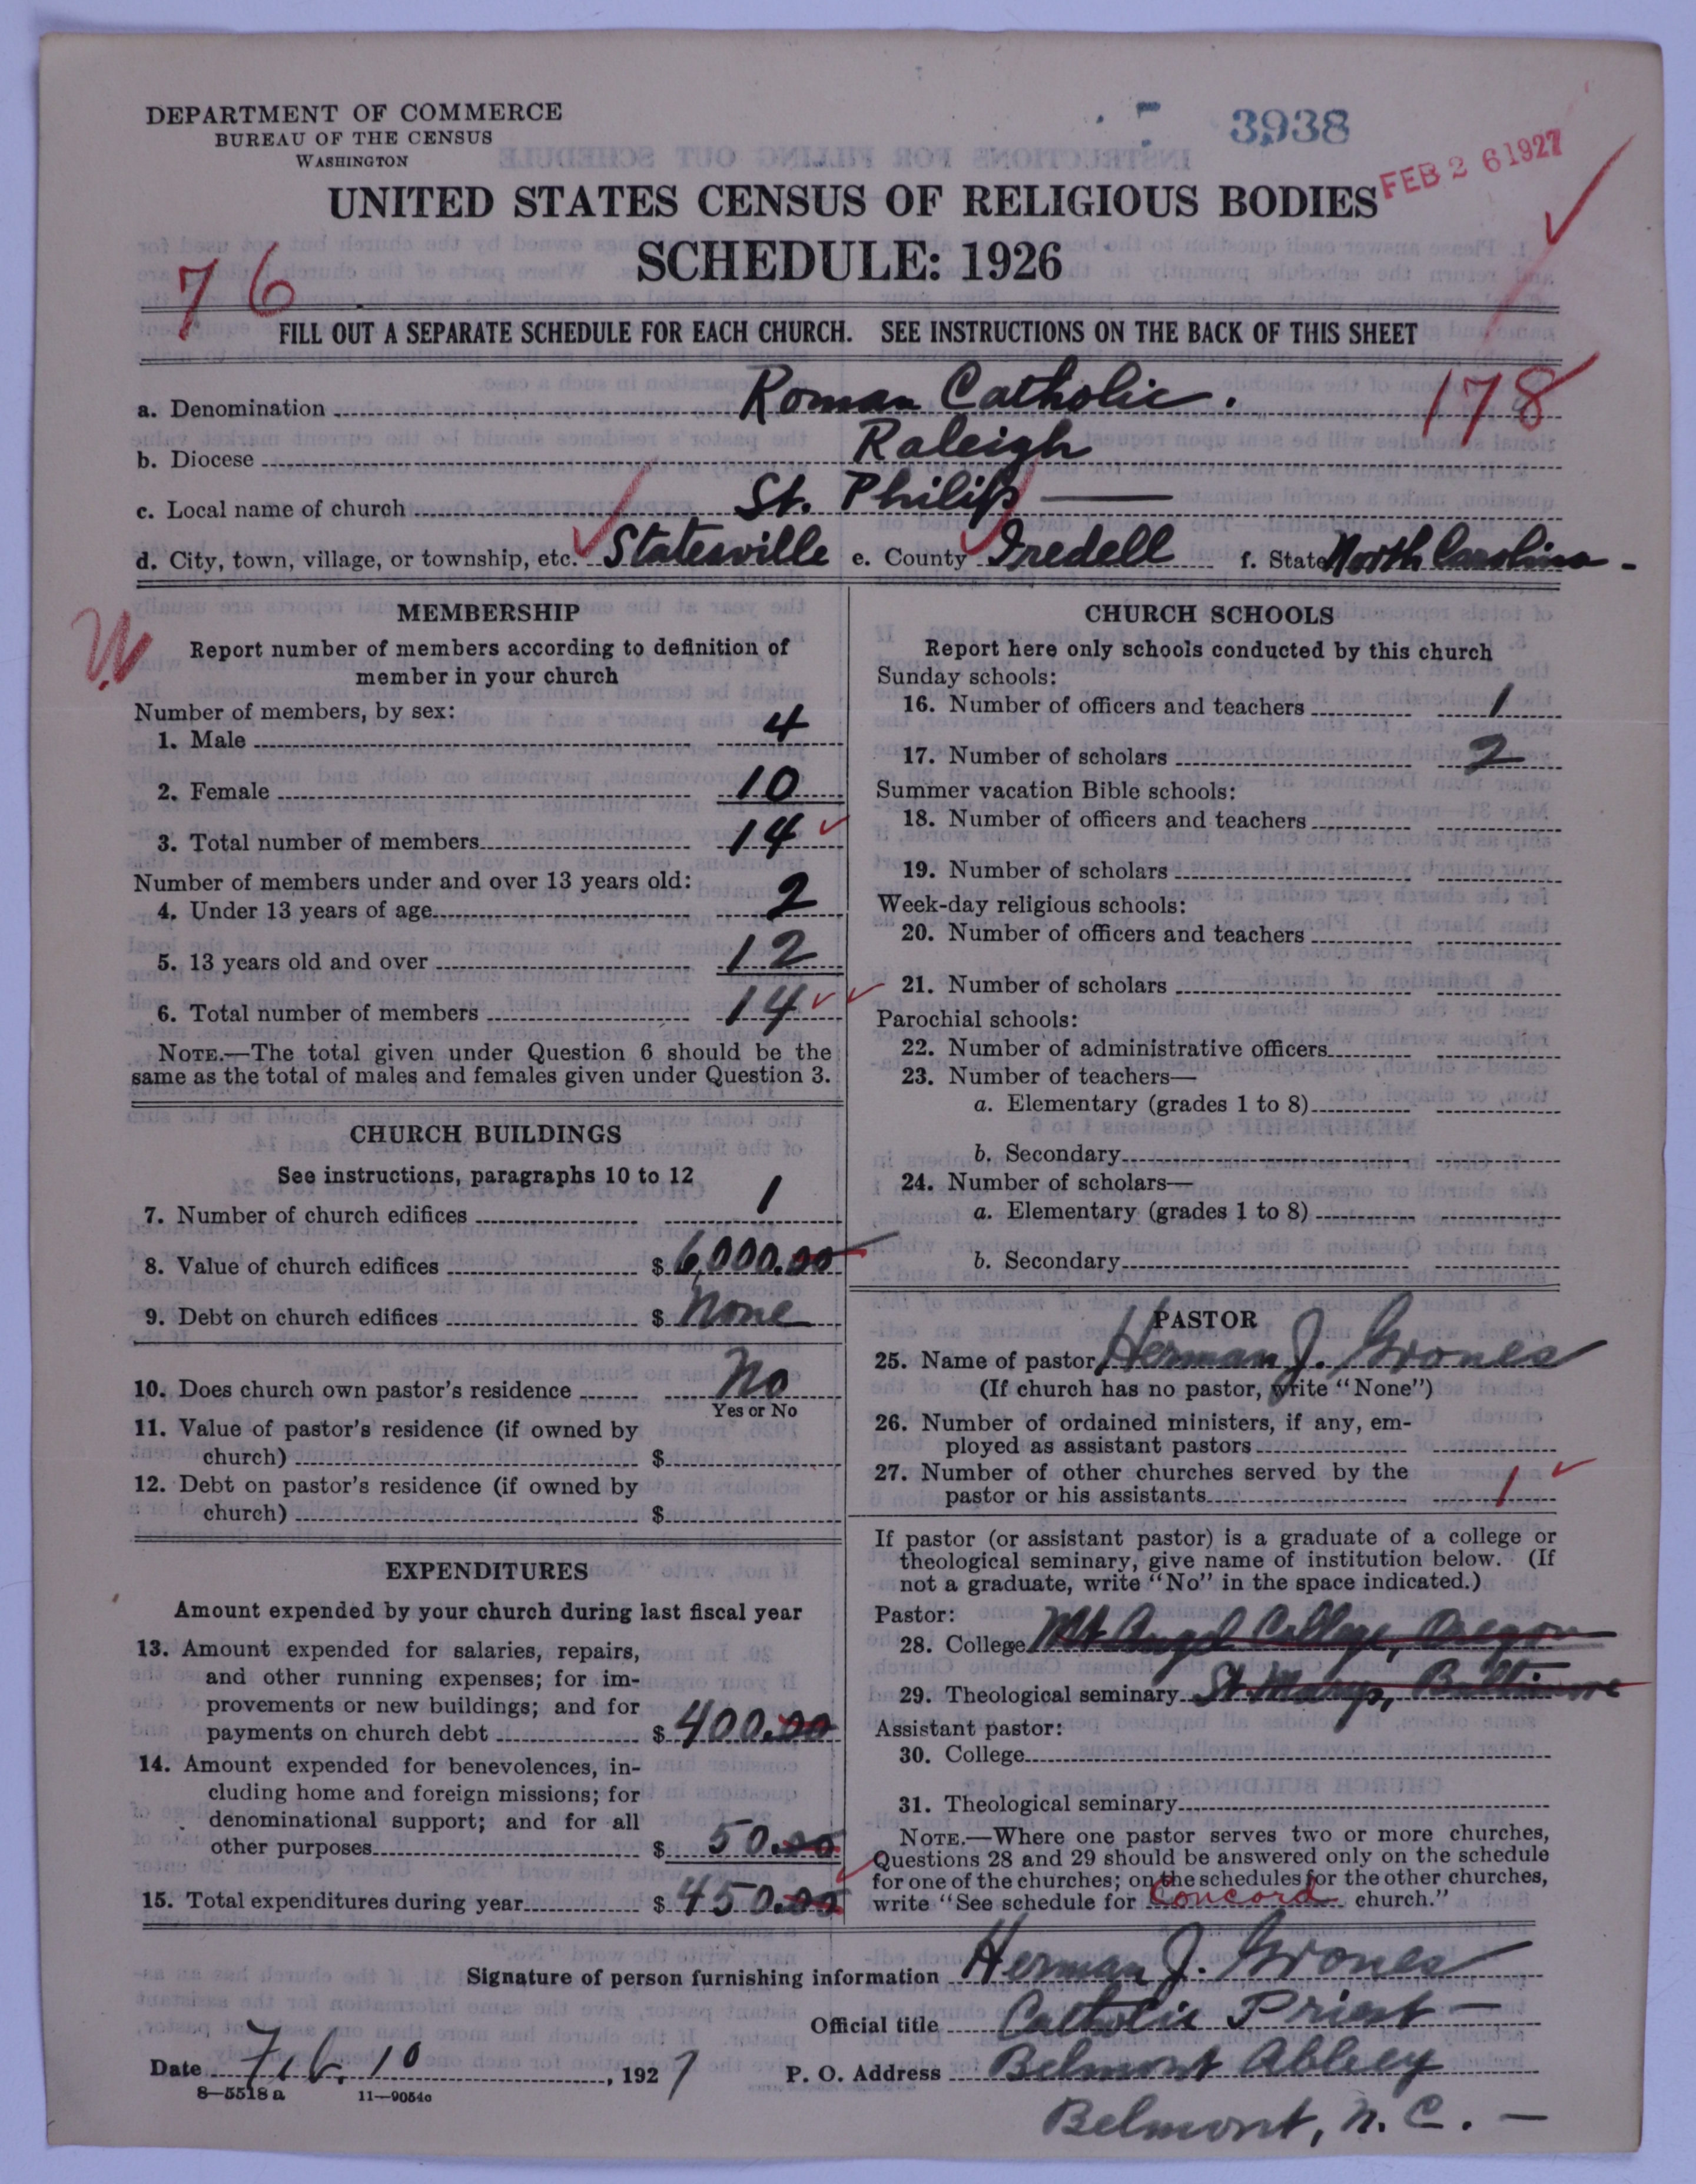 DEPARTMENT OF COMMERCE
BUREAU OF THE CENSUS
WASHINGTON
3938
FEB 26 1927
UNITED STATES CENSUS OF RELIGIOUS BODIES
SCHEDULE: 1926
76
FILL OUT A SEPARATE SCHEDULE FOR EACH CHURCH. SEE INSTRUCTIONS ON THE BACK OF THIS SHEET
a. Denomination Roman Catholic.
178
b. Diocese Raleigh
c. Local name of church St. Philip
d. City, town, village, or township, etc. Statesville e. County Iredell f. State North Carolina
W
MEMBERSHIP
Report number of members according to definition of
member in your church
Number of members, by sex:
1. Male 4
2. Female 10
3. Total number of members 14
Number of members under and over 13 years old:
4. Under 13 years of age 2
5. 13 years old and over 12
6. Total number of members 14
NOTE.—The total given under Question 6 should be the
same as the total of males and females given under Question 3.
CHURCH BUILDINGS
See instructions, paragraphs 10 to 12
7. Number of church edifices 1
8. Value of church edifices $ 6,000.00
9. Debt on church edifices $ None
10. Does church own pastor's residence No
Yes or No
11. Value of pastor's residence (if owned by
church) $
12. Debt on pastor's residence (if owned by
church) $
EXPENDITURES
Amount expended by your church during last fiscal year
13. Amount expended for salaries, repairs,
and other running expenses; for im-
provements or new buildings; and for
payments on church debt $ 400.00
14. Amount expended for benevolences, in-
cluding home and foreign missions; for
denominational support; and for all
other purposes $ 50.00
15. Total expenditures during year $ 450.00
CHURCH SCHOOLS
Report here only schools conducted by this church
Sunday schools:
16. Number of officers and teachers 1
17. Number of scholars 2
Summer vacation Bible schools:
18. Number of officers and teachers
19. Number of scholars
Week-day religious schools:
20. Number of officers and teachers
21. Number of scholars
Parochial schools:
22. Number of administrative officers
23. Number of teachers—
a. Elementary (grades 1 to 8)
b. Secondary
24. Number of scholars—
a. Elementary (grades 1 to 8)
b. Secondary
PASTOR
25. Name of pastor Herman J. Grones
(If church has no pastor, write "None")
26. Number of ordained ministers, if any, em-
ployed as assistant pastors
27. Number of other churches served by the
pastor or his assistants 1
If pastor (or assistant pastor) is a graduate of a college or
theological seminary, give name of institution below. (If
not a graduate, write "No" in the space indicated.)
Pastor:
28. College Mt Angel College, Oregon
29. Theological seminary St Marys, Baltimore
Assistant pastor:
30. College
31. Theological seminary
NOTE.—Where one pastor serves two or more churches,
Questions 28 and 29 should be answered only on the schedule
for one of the churches; on the schedules for the other churches,
write "See schedule for Concord church."
Signature of person furnishing information Herman J. Grones
Official title Catholic Priest
Date Feb. 10, 1927 P. O. Address Belmont Abbey
8—5518a 11—9054c
Belmont, N. C.